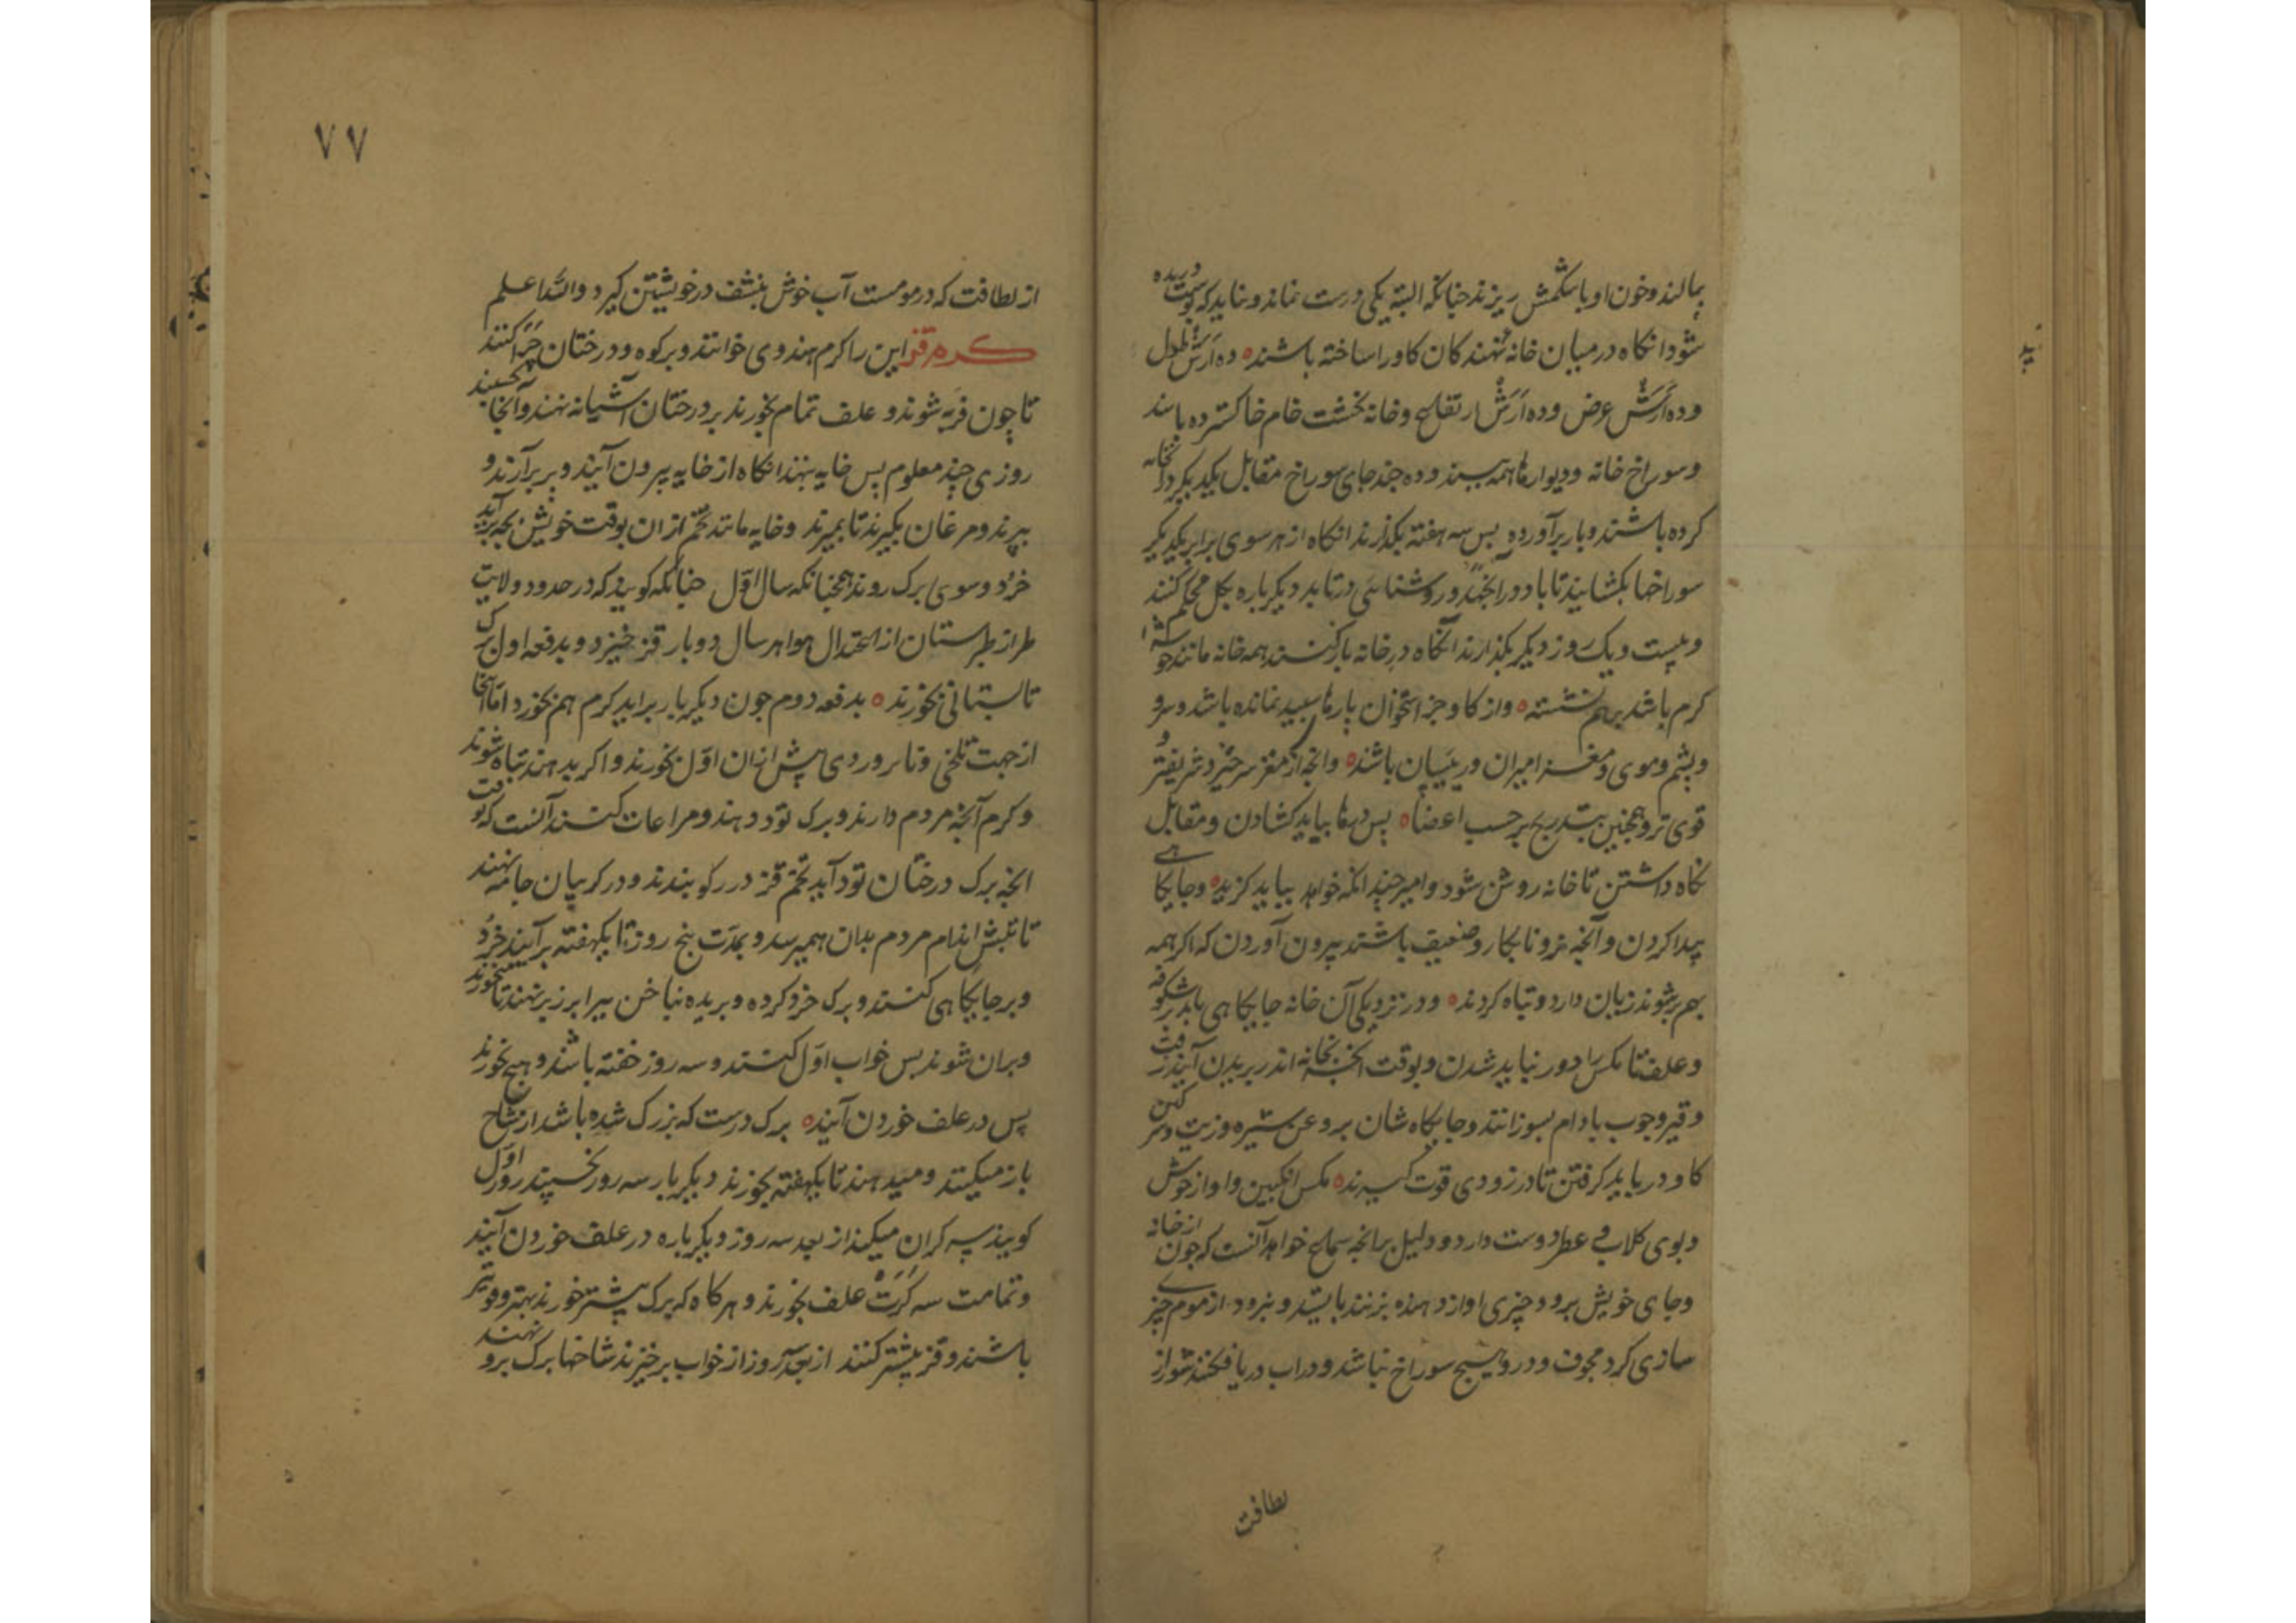 بمالند و خون او باشکمش ریزند جنانکه البته یکی درست نماند و نباید که پوست دریده
شود انکاه در میان خانه نهند کان کاو را ساخته باشند ده اَرَش طول
و ده اَرَش عرض و ده اَرَش ارتفاع و خانه بخشت خام خاکستر ده باشد
و سوراخ خانه و دیوارها همه ببندد و ده جند جای سوراخ مقابل یکدیکر در انخانه
کرده باشند و باز برآورده بس سه هفته بکذرند انکاه از هر سوی برابر یکدیکر
سوراخها بکشایند تا باد در آنجهد و روشنائی درتابد دیکرباره بکل محکم کنند
و بیست و یک روز دیکر بکذارند آنکاه در خانه باز کنند همه خانه مانند خوشه
کرم باشد برهم نشسته و از کاو جز استخوان پارها سبید نمانده باشد و سرو
و پشم و موی و مغز امیران و رئیسان باشند و انجه از مغز سر خیزد شریفتر و
قوی تر و همجنین بتدریج بر حسب اعضا پس درها بباید کشادن و مقابل
نکاه داشتن تا خانه روشن شود و امیر جند انکه خواهد بباید کزید و جایکاهی
پیدا کردن و آنجه نر و نابکار و ضعیف باشند بیرون آوردن که اکر همه
بهم بر شوند زیان دارد و تباه کردند و در نزدیکی آن خانه جایکاهی باید بر شکوفه
و علف تا مکس را دور نباید شدن و بوقت انک بخانه اندر پریدن آیند زفت
و قیر و جوب بادام بسوزانند و جایکاه شان بروغن شیره و زیت و سرکین
کاو در باید کرفتن تا در زودی قوت کیرند مکس انکبین و آواز خوش
و بوی کلاب و عطر دوست دارد و دلیل بر انجه سماع خواهد آنست که جون از خانه
و جای خویش برود جیزی اواز دهنده بزنند بایستد و نرود از موم جیزی
سازی کرد مجوف و در و هیج سوراخ نباشد و در اب دریا فکنند شور از
لطافت
۷۷
از لطافت که در مومست آب خوش بنشف در خویشتن کیرد والله اعلم
کرم قز این را کرم هندوی خوانند و بر کوه و درختان چرا کنند
تا چون فربه شوند و علف تمام بخورند بر درختان آشیانه نهند و آنجا بخسبند
روزی چند معلوم پس خایه بنهند انکاه از خایه بیرون آیند و پر برآرند و
بپرند و مرغان بکیرند تا بمیرند و خایه مانند تخم از ان بوقت خویش بجه برآید
خرد و سوی برک روند همجنانکه سال اوّل جنانکه کویند که در حدود ولایت
طراز طبرستان از اعتدال هوا هر سال دوبار قز خیزد و بدفعه اول برک
تابستانی بخورند بدفعه دوم جون دیکر بار برآید کرم هم بخورد اما آنجا
از جهت تلخی و ناپروردی پیش از ان اوّل نخورند و اکر بدهند تباه شوند
و کرم آنجه مردم دارند و برک تود دهند و مراعات کنند آنست که بوقت
انجه برک درختان تود آید تخم قز در رکو بندند و در کریبان جامه نهند
تا تبش اندام مردم بدان همیرسد و بمدّت پنج روز تا یکهفته برآیند خرد
و بر جایکاهی کنند و برک خرد کرده و بریده بناخن پیرا بر زبر نهند تا میخورند
و بران شوند بس خواب اوّل کنند و سه روز خفته باشند و هیچ نخورند
پس در علف خوردن آیند برک درست که بزرک شده باشد از شاخ
باز میکنند و میدهند تا یکهفته بخورند دیکر بار سه روز بخسپند روز اوّل
کویند سه کران میکند از بعد سه روز دیکرباره در علف خوردن آیند
و تمامت سه کرّت علف بخورند و هر کاه که برک بیشتر خورند بهتر و قوی تر
باشند و قز بیشتر کنند از بعد سه روز از خواب برخیزند شاخها برک برو نهند